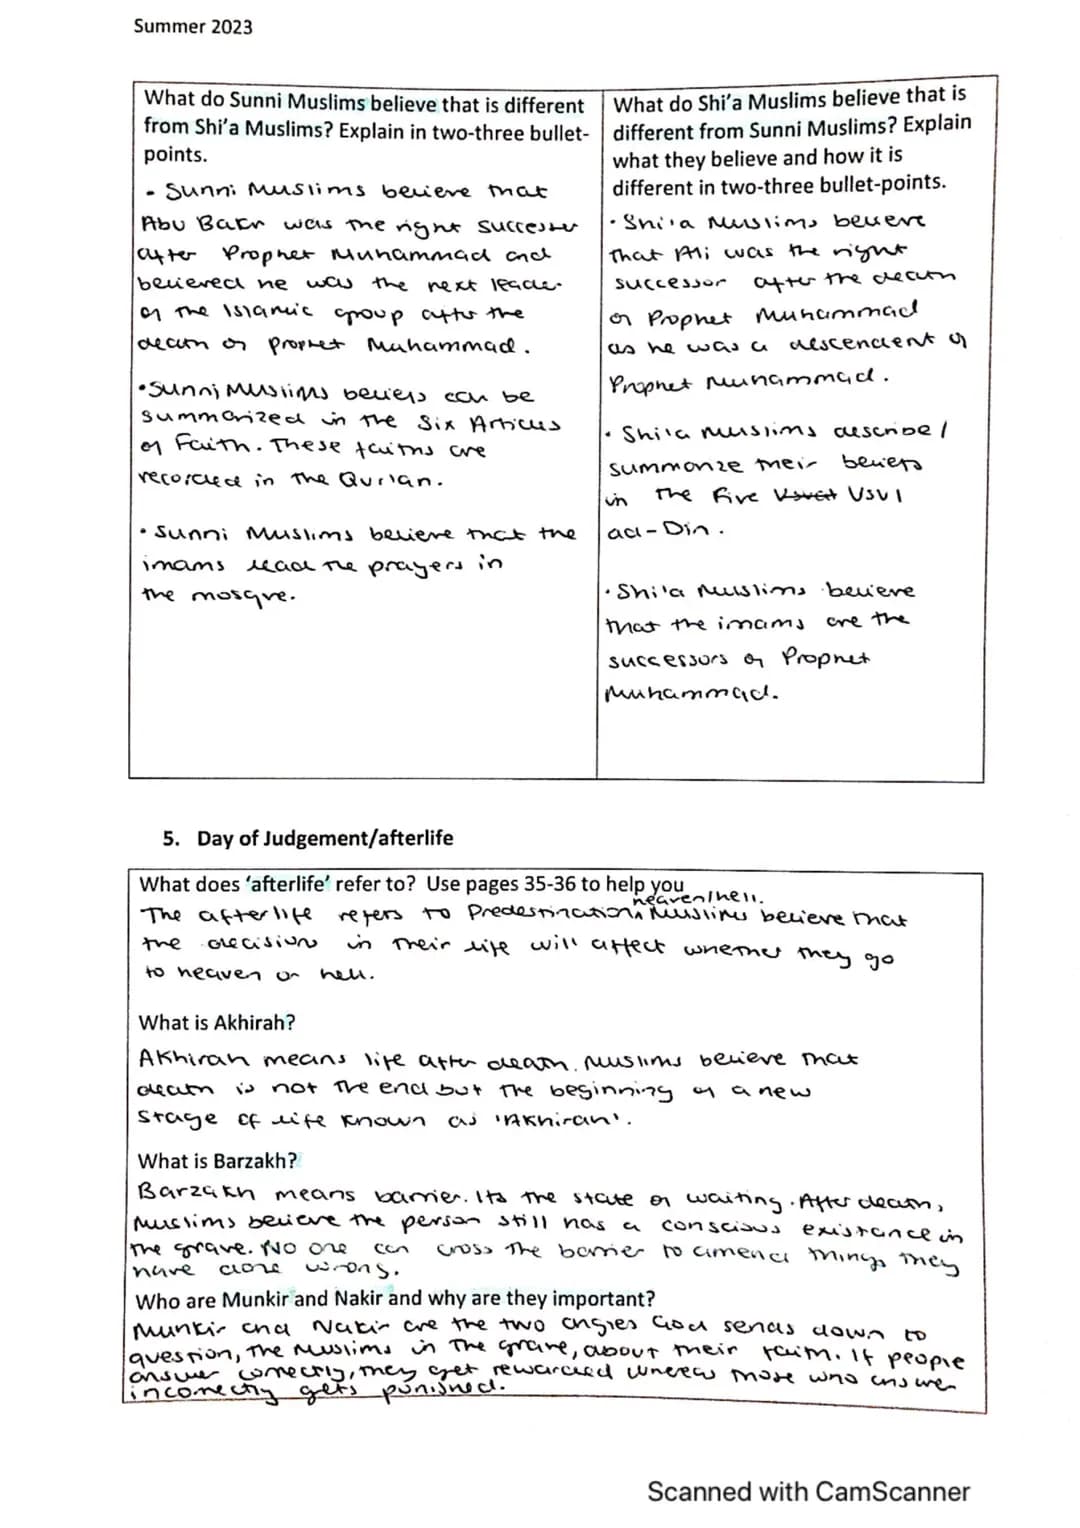 Summer 2023
What do Sunni Muslims believe that is different
from Shi'a Muslims? Explain in two-three bullet-
points.
• Sunni Muslims believe that
Abu Bakr was the right successer
after Prophet Muhammad and
believed he was the next leader
of the Islamic group after the
death of prophet Muhammad.
•Sunni Muslims beliefs can be
summarized in the Six Articles
of Faith. These faiths are
recorded in the Qur'an.
• Sunni Muslims believe that the
imams lead the prayers in
the mosque.
What do Shi'a Muslims believe that is
different from Sunni Muslims? Explain
what they believe and how it is
different in two-three bullet-points.
• Shi'a Muslims believe
that Ali was the right
successor after the death
of Prophet Muhammad
as he was a descendent of
Prophet Muhammad.
• Shi'a Muslims describe/
summorize their beliefs
in the Five Usul
ad-Din.
• Shi'a Muslims believe
that the imams are the
successors of Prophet
Muhammad.
5. Day of Judgement/afterlife
What does 'afterlife' refer to? Use pages 35-36 to help you
heaven/hell.
The afterlife refers to Predestination Muslims believe that
the decisions in their life will affect whether they go
to heaven or hell.
What is Akhirah?
Akhirah means life after death. Muslims believe that
death is not the end but the beginning of a new
stage of life known as 'Akhirah'.
What is Barzakh?
Barzakh means barrier. Its the state of waiting. After death,
Muslims believe the person still has a conscious existance in
the grave. No one can cross the barrier to amend things they
have done wrong.
Who are Munkir and Nakir and why are they important?
Munkir and Nakir are the two angles God sends down to
question, the Muslims in the grave, about their faith. If people
answer correctly, they get rewarded whereas those who answer
incorrectly gets punished.
Scanned with CamScanner